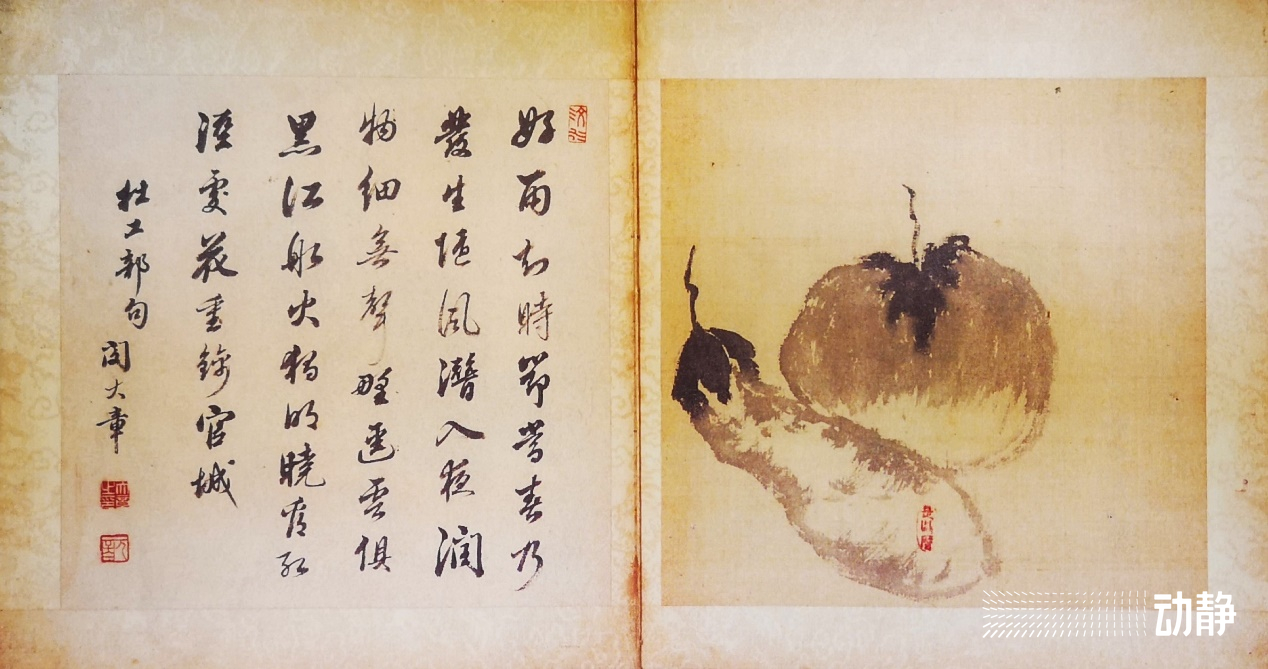 好雨知時節當春乃
發生隨風潛入夜潤
物細無聲野逕雲俱
黑江船火獨明曉看紅
溼處花重錦官城
杜工部句
大章
动静